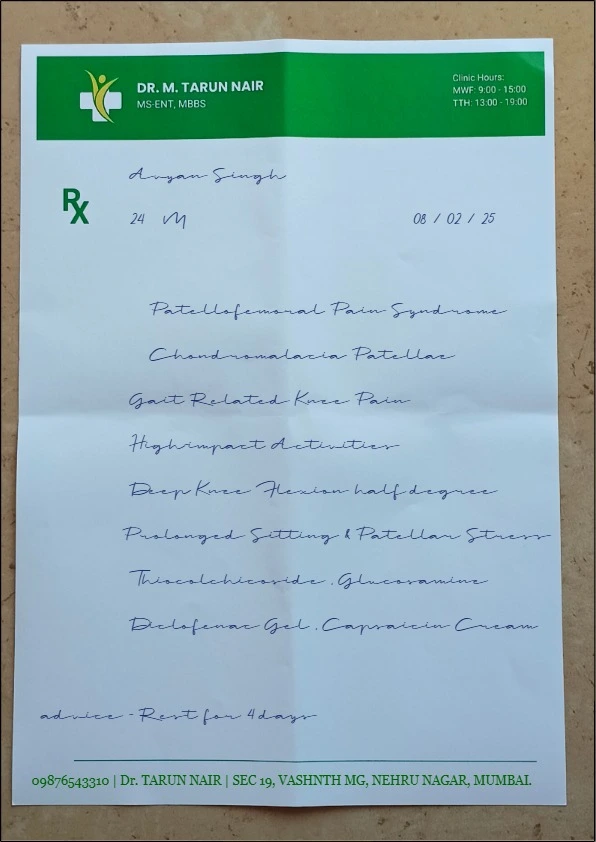 DR. M. TARUN NAIR
MS-ENT, MBBS
Clinic Hours:
MWF: 9:00 - 15:00
TTH: 13:00 - 19:00
Avyan Singh
Rx
24 M
08 / 02 / 25
Patellofemoral Pain Syndrome
Chondromalacia Patellae
Gait Related Knee Pain
Highimpact Activities
Deep Knee Flexion half degree
Prolonged Sitting & Patellar Stress
Thiocolchicoside . Glucosamine
Diclofenac Gel . Capsaicin Cream
advice - Rest for 4days
09876543310 | Dr. TARUN NAIR | SEC 19, VASHNTH MG, NEHRU NAGAR, MUMBAI.